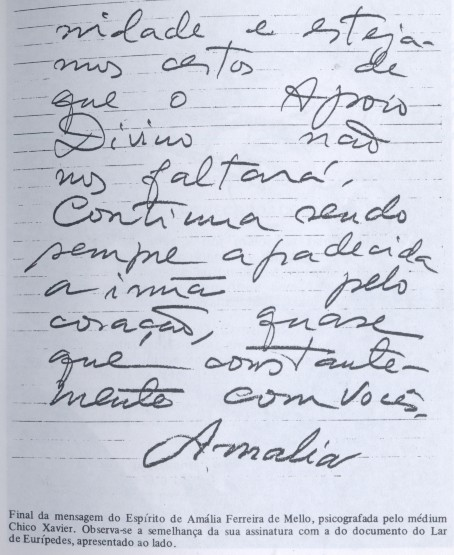 nidade e esteja-
mos certos de
que o Apoio
Divino não
nos faltará.
Continua sendo
sempre agradecida
a irmã pelo
coração, quase
que constante-
mente com vocês.
Amalia
Final da mensagem do Espírito de Amália Ferreira de Mello, psicografada pelo médium
Chico Xavier. Observa-se a semelhança da sua assinatura com a do documento do Lar
de Eurípedes, apresentado ao lado.